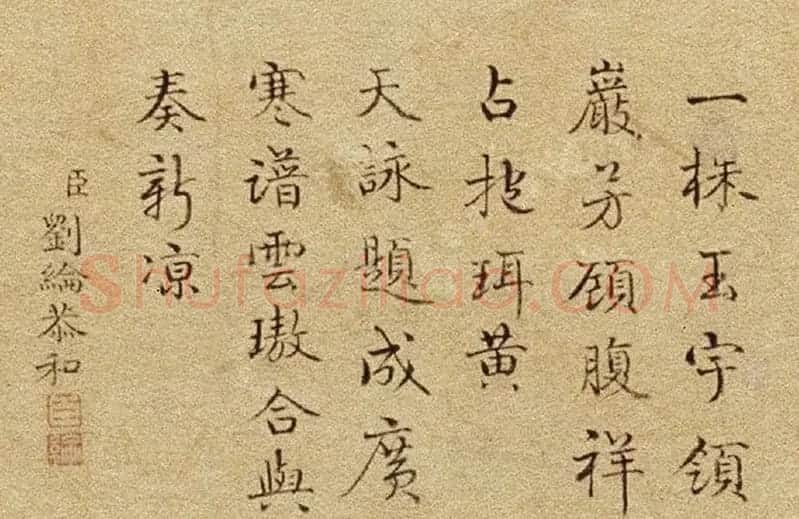 一株玉宇領
巖芳顧腹祥
占抱珥黄
天詠題成廣
寒譜雲璈合與
奏新凉
臣劉綸恭和
shufazidao.com